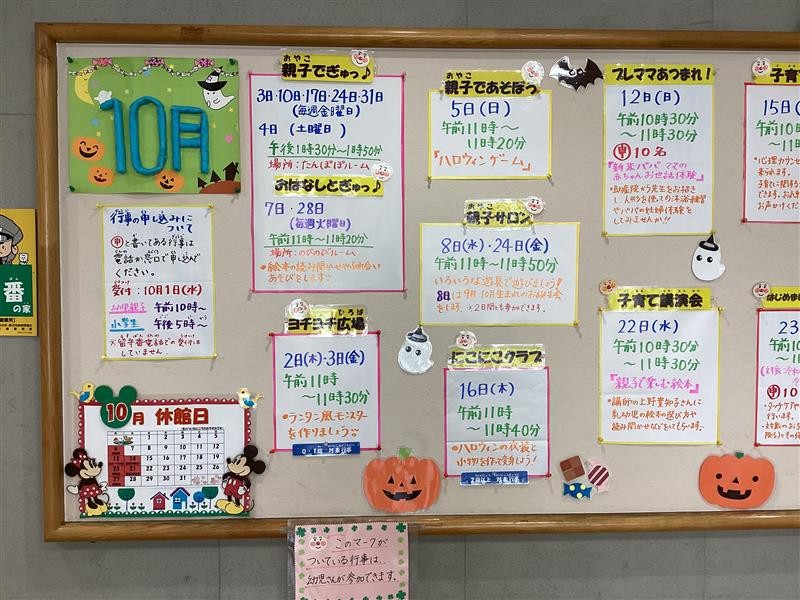 10月
行事の申し込みに
ついて
申と書いてある行事は
電話か窓口で申し込んで
ください。
受付：10月1日(水)
幼児親子 午前10時～
小学生 午後5時～
※留守番電話での受付は
していません。
10月 休館日
おやこ
親子でぎゅっ♪
3日・10日・17日・24日・31日
(毎週金曜日)
4日 (土曜日)
午後1時30分～1時50分
場所：たんぽぽルーム
おはなしとぎゅっ♪
7日・28日
(毎週火曜日)
午前11時～11時20分
場所：のびのびルーム
・絵本の読み聞かせやふれ合い
あそびをします
ひろば
ヨチヨチ広場
2日(木)・3日(金)
午前11時
～11時30分
・ランタン風モンスター
を作りましょう
0・1歳 対象行事
おやこ
親子であそぼっ
5日(日)
午前11時～
11時20分
「ハロウィンゲーム」
おやこ
親子サロン
8日(水)・24日(金)
午前11時～11時50分
いろいろな遊具で遊びましょう!
8日は9月・10月生まれのお誕生会
をします。※2日間とも参加できます。
にこにこクラブ
16日(木)
午前11時
～11時40分
・ハロウィンの衣装と
小物を作って変身しよう!
2歳以上 対象行事
プレママあつまれ!
12日(日)
午前10時30分
～11時30分
申 10名
『新米パパママの
赤ちゃんお世話体験』
・助産院から先生をお招き
し、人形を使っての沐浴練習
やパパの妊婦体験を
してみませんか!!
子育て講演会
22日(水)
午前10時30分
～11時30分
『親子で楽しむ絵本』
・講師の上野真知子さんに
乳幼児の絵本の選び方や
読み聞かせなどをしてもらいます
子育て
15日(
午前1
はじめま
23
番
の家
このマークが
ついている行事は、
幼児さんが参加できます。